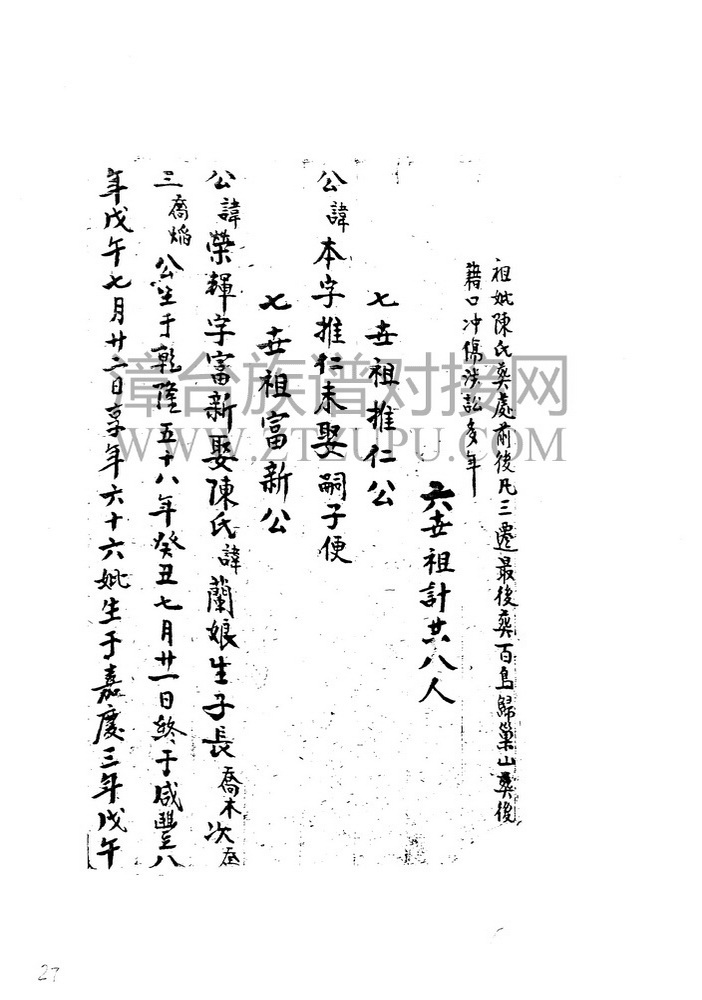 祖妣陳氏葬處前後凡三遷最後葬百鳥歸巢山葬後
藉口冲傷涉訟多年
六世祖計共八人
七世祖推仁公
公諱本字推仁未娶嗣子便
七世祖富新公
公諱榮輝字富新娶陳氏諱蘭娘生子長喬木次
三喬焰公生于乾隆五十八年癸丑七月廿一日終于咸豐八
年戊午七月廿二日享年六十六妣生于嘉慶三年戊午
漳台族谱对接网
WWW.ZTZUPU.COM
27